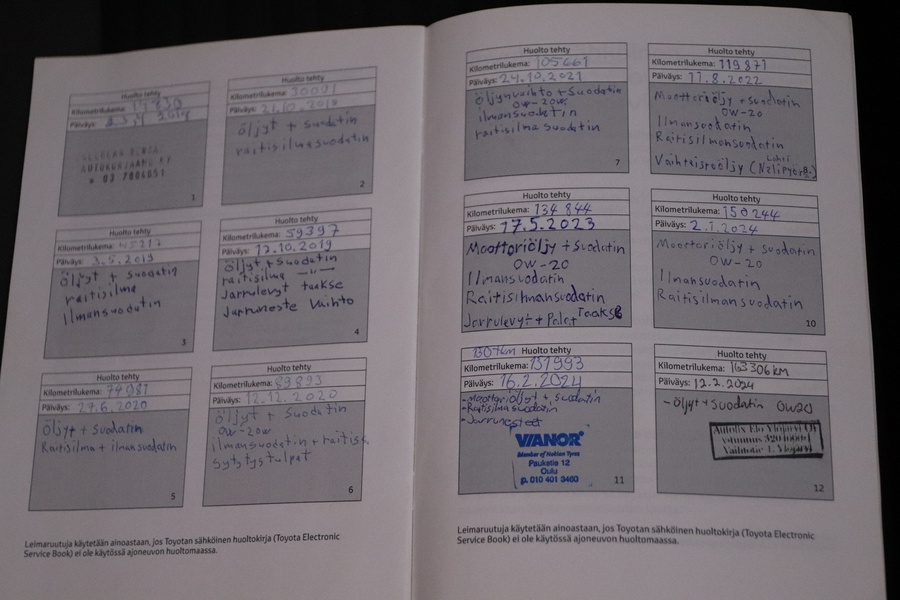 Huolto tehty
Kilometrilukema:
Päiväys: 2018
AUTOKORJAAMO KY
1
Huolto tehty
Kilometrilukema: 30091
Päiväys: 21.10.2018
öljyt + suodatin
raitisilmasuodatin
2
Huolto tehty
Kilometrilukema: 45217
Päiväys: 3.5.2019
öljyt + suodatin
raitisilma
ilmansuodatin
3
Huolto tehty
Kilometrilukema: 59397
Päiväys: 12.10.2019
öljyt + suodatin
raitisilma —"—
Jarrulevyt taakse
Jarruneste vaihto
4
Huolto tehty
Kilometrilukema: 74981
Päiväys: 27.6.2020
Öljyt + suodatin
Raitisilma + ilmansuodatin
5
Huolto tehty
Kilometrilukema: 89893
Päiväys: 12.12.2020
öljyt + suodatin
0W-20W
ilmansuodatin + raitisi.
Sytytystulpat
6
Leimaruutuja käytetään ainoastaan, jos Toyotan sähköinen huoltokirja (Toyota Electronic
Service Book) ei ole käytössä ajoneuvon huoltomaassa.
Huolto tehty
Kilometrilukema: 105661
Päiväys: 24.10.2021
öljynvaihto + suodatin
0W-20W
ilmansuodatin
raitisilma suodatin
7
Huolto tehty
Kilometrilukema: 119871
Päiväys: 11.8.2022
Moottoriöljy + suodatin
0W-20
Ilmansuodatin
Raitisilmansuodatin
Vaihteistoöljy
Huolto tehty
Kilometrilukema: 134 844
Päiväys: 17.5.2023
Moottoriöljy + suodatin
0W-20
Ilmansuodatin
Raitisilmansuodatin
Jarrulevyt + Palat Taakse
Huolto tehty
Kilometrilukema: 150 244
Päiväys: 2.1.2024
Moottoriöljy + suodatin
0W-20
Ilmansuodatin
Raitisilmansuodatin
10
Huolto tehty
Kilometrilukema: 151993
Päiväys: 16.2.2024
- Moottoriöljyt + suodatin
- Raitisilmasuodatin
- Jarrunesteet
VIANOR
Member of Nokian Tyres
Pauketie 12
Oulu
p. 010 401 3460
11
Huolto tehty
Kilometrilukema: 163306 KM
Päiväys: 12.2.2024
- öljyt + suodatin 0W20
12
Leimaruutuja käytetään ainoastaan, jos Toyotan sähköinen huoltokirja (Toyota Electronic
Service Book) ei ole käytössä ajoneuvon huoltomaassa.